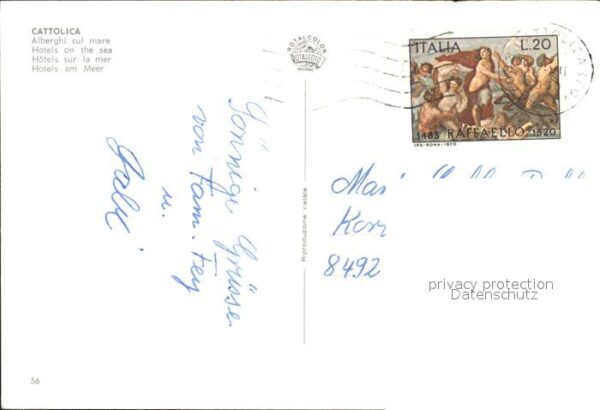 CATTOLICA
Alberghi sul mare
Hotels on the sea
Hôtels sur la mer
Hotels am Meer
ROTALCOLOR
ROTALFOTO
MILANO
ITALIA L.20
1483 RAFFAELLO 1520
I.P.S.-ROMA-1970
CATTOLICA
Sonnige Grüsse
von Fam. Fey
u.
8492
Riproduzione Vietata
privacy protection
Datenschutz
56